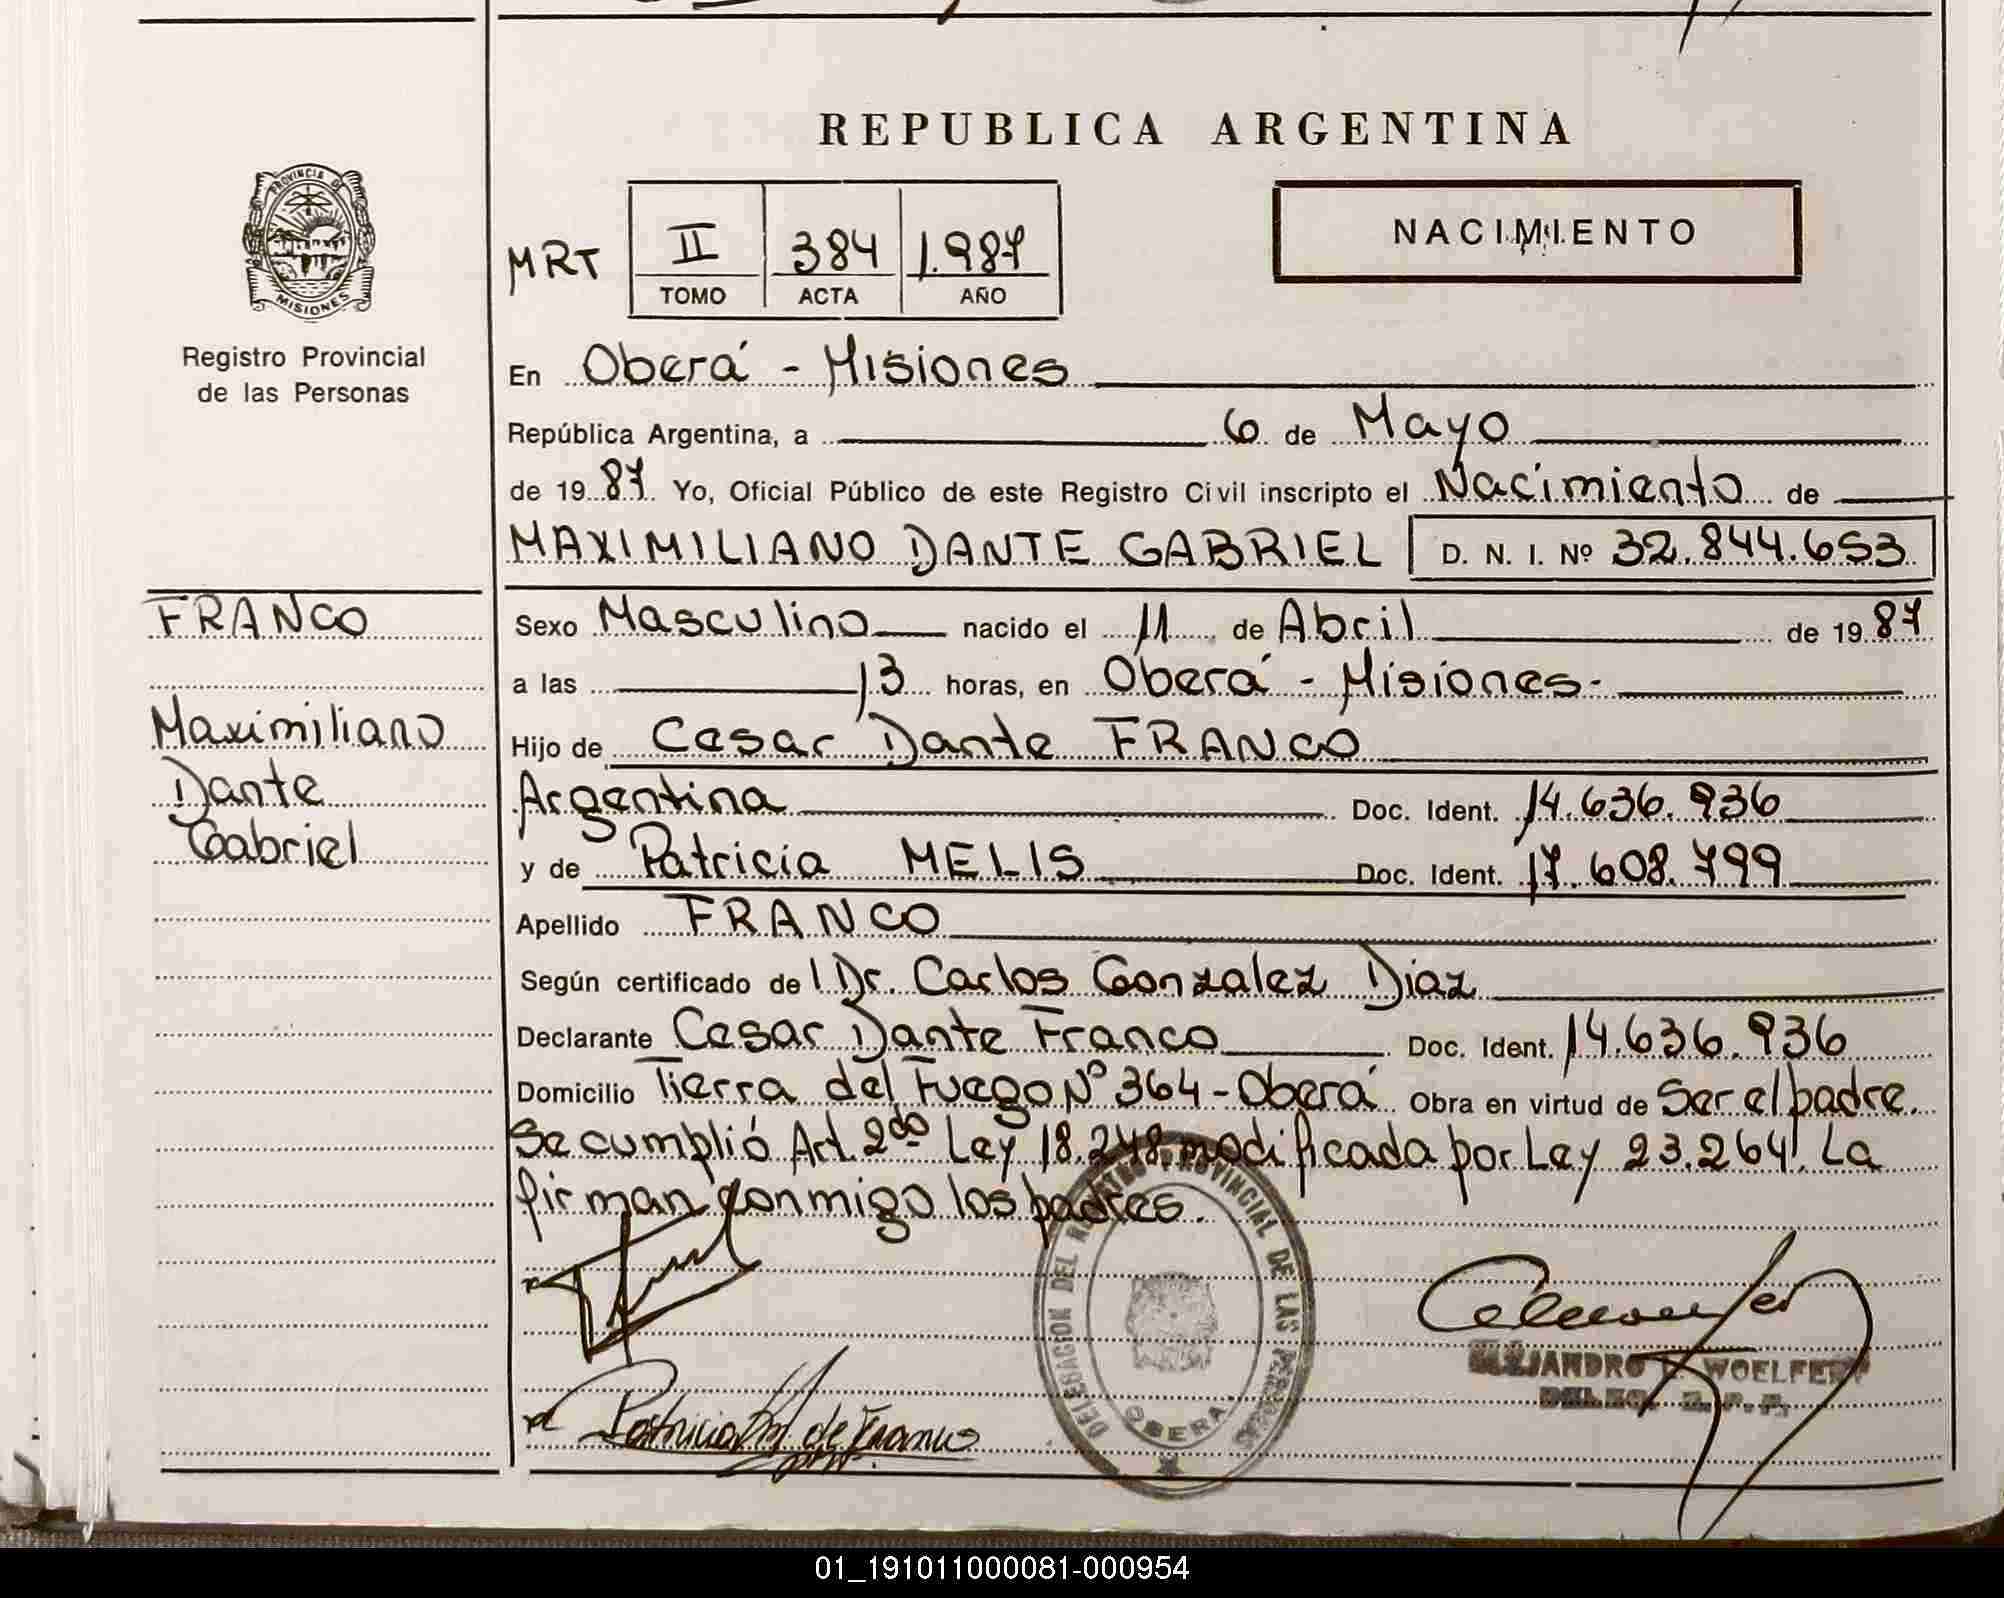 REPUBLICA ARGENTINA
PROVINCIA DE
MISIONES
Registro Provincial
de las Personas
NACIMIENTO
MRT II 384 1.987
TOMO ACTA AÑO
En Oberá - Misiones
República Argentina, a 6 de Mayo
de 1987 Yo, Oficial Público de este Registro Civil inscripto el Nacimiento de
MAXIMILIANO DANTE GABRIEL D. N. I. Nº 32.844.653
FRANCO
Maximiliano
Dante
Gabriel
Sexo Masculino nacido el 11 de Abril de 1987
a las 13 horas, en Oberá - Misiones-
Hijo de Cesar Dante FRANCO
Argentina Doc. Ident. 14.636.936
y de Patricia MELIS Doc. Ident. 17.608.799
Apellido FRANCO
Según certificado de l Dr. Carlos Gonzalez Diaz
Declarante Cesar Dante Franco Doc. Ident. 14.636.936
Domicilio Tierra del Fuego Nº 364 - Oberá Obra en virtud de Ser el padre.
Se cumplió Art. 2do Ley 18.248 modificada por Ley 23.264. La
firman conmigo los padres.
DELEGACION DEL REGISTRO PROVINCIAL DE LAS PERSONAS
OBERA
Patricia M. de Franco
ALEJANDRO WOELFERT